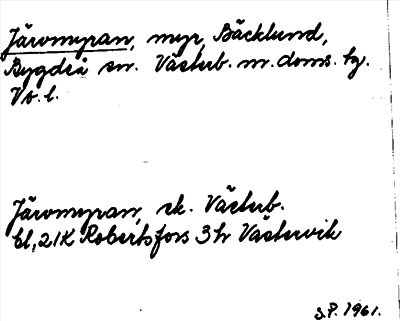 Järomyran, myr, Bäcklund,
Bygdeå sn. Västerb. m. doms. tg.
Vb. l.
Järomyran, sk. Västerb.
bl, 21K Robertsfors 3h Västervik
S.P. 1961.